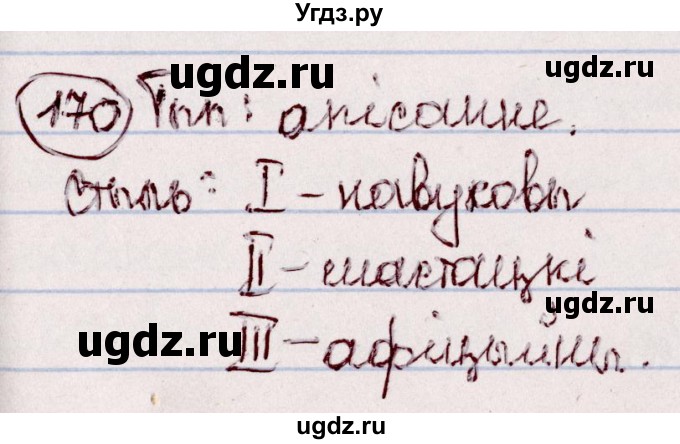 Угдз.ру
ugdz.ru
170 Тып: апісанне.
ugdz.ru
Стыль: I – навуковы
II – мастацкі
ugdz.ru
ugdz.ru
III – афіцыйны.
ugdz.ru